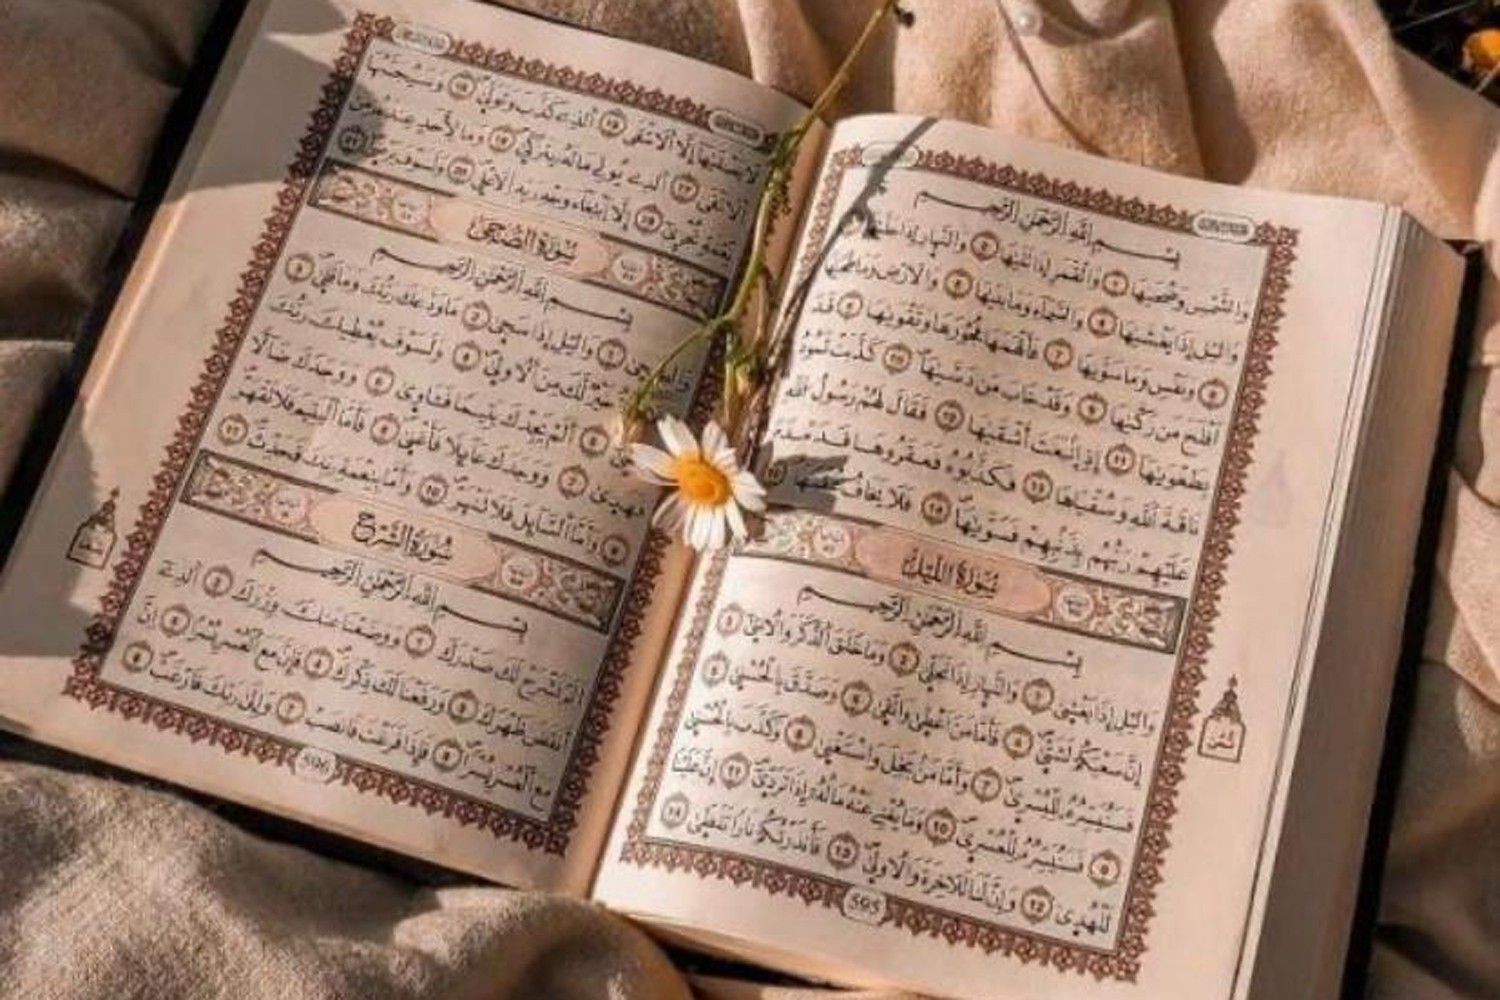 بِسْمِ اللَّهِ الرَّحْمَٰنِ الرَّحِيمِ
وَالشَّمْسِ وَضُحَاهَا ١ وَالْقَمَرِ إِذَا تَلَاهَا ٢ وَالنَّهَارِ إِذَا
وَاللَّيْلِ إِذَا يَغْشَاهَا ٤ وَالسَّمَاءِ وَمَا بَنَاهَا ٥ وَالْأَرْضِ وَمَا طَحَاهَا
٦ وَنَفْسٍ وَمَا سَوَّاهَا ٧ فَأَلْهَمَهَا فُجُورَهَا وَتَقْوَاهَا ٨ قَدْ
أَفْلَحَ مَن زَكَّاهَا ٩ وَقَدْ خَابَ مَن دَسَّاهَا ١٠ كَذَّبَتْ ثَمُودُ
بِطَغْوَاهَا ١١ إِذِ انبَعَثَ أَشْقَاهَا ١٢ فَقَالَ لَهُمْ رَسُولُ اللَّهِ
نَاقَةَ اللَّهِ وَسُقْيَاهَا ١٣ فَكَذَّبُوهُ فَعَقَرُوهَا فَدَمْدَمَ
عَلَيْهِمْ رَبُّهُم بِذَنبِهِمْ فَسَوَّاهَا ١٤ فَلَا يَخَافُ
سُورَةُ اللَّيْلِ
بِسْمِ اللَّهِ الرَّحْمَٰنِ الرَّحِيمِ
وَاللَّيْلِ إِذَا يَغْشَىٰ ١ وَالنَّهَارِ إِذَا تَجَلَّىٰ ٢ وَمَا خَلَقَ الذَّكَرَ وَالْأُنثَىٰ ٣
إِنَّ سَعْيَكُمْ لَشَتَّىٰ ٤ فَأَمَّا مَنْ أَعْطَىٰ وَاتَّقَىٰ ٥ وَصَدَّقَ بِالْحُسْنَىٰ ٦
فَسَنُيَسِّرُهُ لِلْيُسْرَىٰ ٧ وَأَمَّا مَن بَخِلَ وَاسْتَغْنَىٰ ٨ وَكَذَّبَ بِالْحُسْنَىٰ
٩ فَسَنُيَسِّرُهُ لِلْعُسْرَىٰ ١٠ وَمَا يُغْنِي عَنْهُ مَالُهُ إِذَا تَرَدَّىٰ ١١ إِنَّ عَلَيْنَا
لَلْهُدَىٰ ١٢ وَإِنَّ لَنَا لَلْآخِرَةَ وَالْأُولَىٰ ١٣ فَأَنذَرْتُكُمْ نَارًا تَلَظَّىٰ ١٤
595
لَا يَصْلَاهَا إِلَّا الْأَشْقَى ١٥ الَّذِي كَذَّبَ وَتَوَلَّىٰ ١٦ وَسَيُجَنَّبُهَا
الْأَتْقَى ١٧ الَّذِي يُؤْتِي مَالَهُ يَتَزَكَّىٰ ١٨ وَمَا لِأَحَدٍ عِندَهُ مِن
نِّعْمَةٍ تُجْزَىٰ ١٩ إِلَّا ابْتِغَاءَ وَجْهِ رَبِّهِ الْأَعْلَىٰ ٢٠ وَلَسَوْفَ يَرْضَىٰ ٢١
سُورَةُ الضُّحَىٰ
بِسْمِ اللَّهِ الرَّحْمَٰنِ الرَّحِيمِ
١ وَاللَّيْلِ إِذَا سَجَىٰ ٢ مَا وَدَّعَكَ رَبُّكَ وَمَا قَلَىٰ ٣
خَيْرٌ لَّكَ مِنَ الْأُولَىٰ ٤ وَلَسَوْفَ يُعْطِيكَ رَبُّكَ
٥ أَلَمْ يَجِدْكَ يَتِيمًا فَآوَىٰ ٦ وَوَجَدَكَ ضَالًّا
فَهَدَىٰ ٧ وَوَجَدَكَ عَائِلًا فَأَغْنَىٰ ٨ فَأَمَّا الْيَتِيمَ فَلَا تَقْهَرْ
٩ وَأَمَّا السَّائِلَ فَلَا تَنْهَرْ ١٠ وَأَمَّا بِنِعْمَةِ رَبِّكَ فَحَدِّثْ ١١
سُورَةُ الشَّرْحِ
بِسْمِ اللَّهِ الرَّحْمَٰنِ الرَّحِيمِ
أَلَمْ نَشْرَحْ لَكَ صَدْرَكَ ١ وَوَضَعْنَا عَنكَ وِزْرَكَ ٢ الَّذِي
أَنقَضَ ظَهْرَكَ ٣ وَرَفَعْنَا لَكَ ذِكْرَكَ ٤ فَإِنَّ مَعَ الْعُسْرِ يُسْرًا ٥ إِنَّ
مَعَ الْعُسْرِ يُسْرًا ٦ فَإِذَا فَرَغْتَ فَانصَبْ ٧ وَإِلَىٰ رَبِّكَ فَارْغَب ٨
596